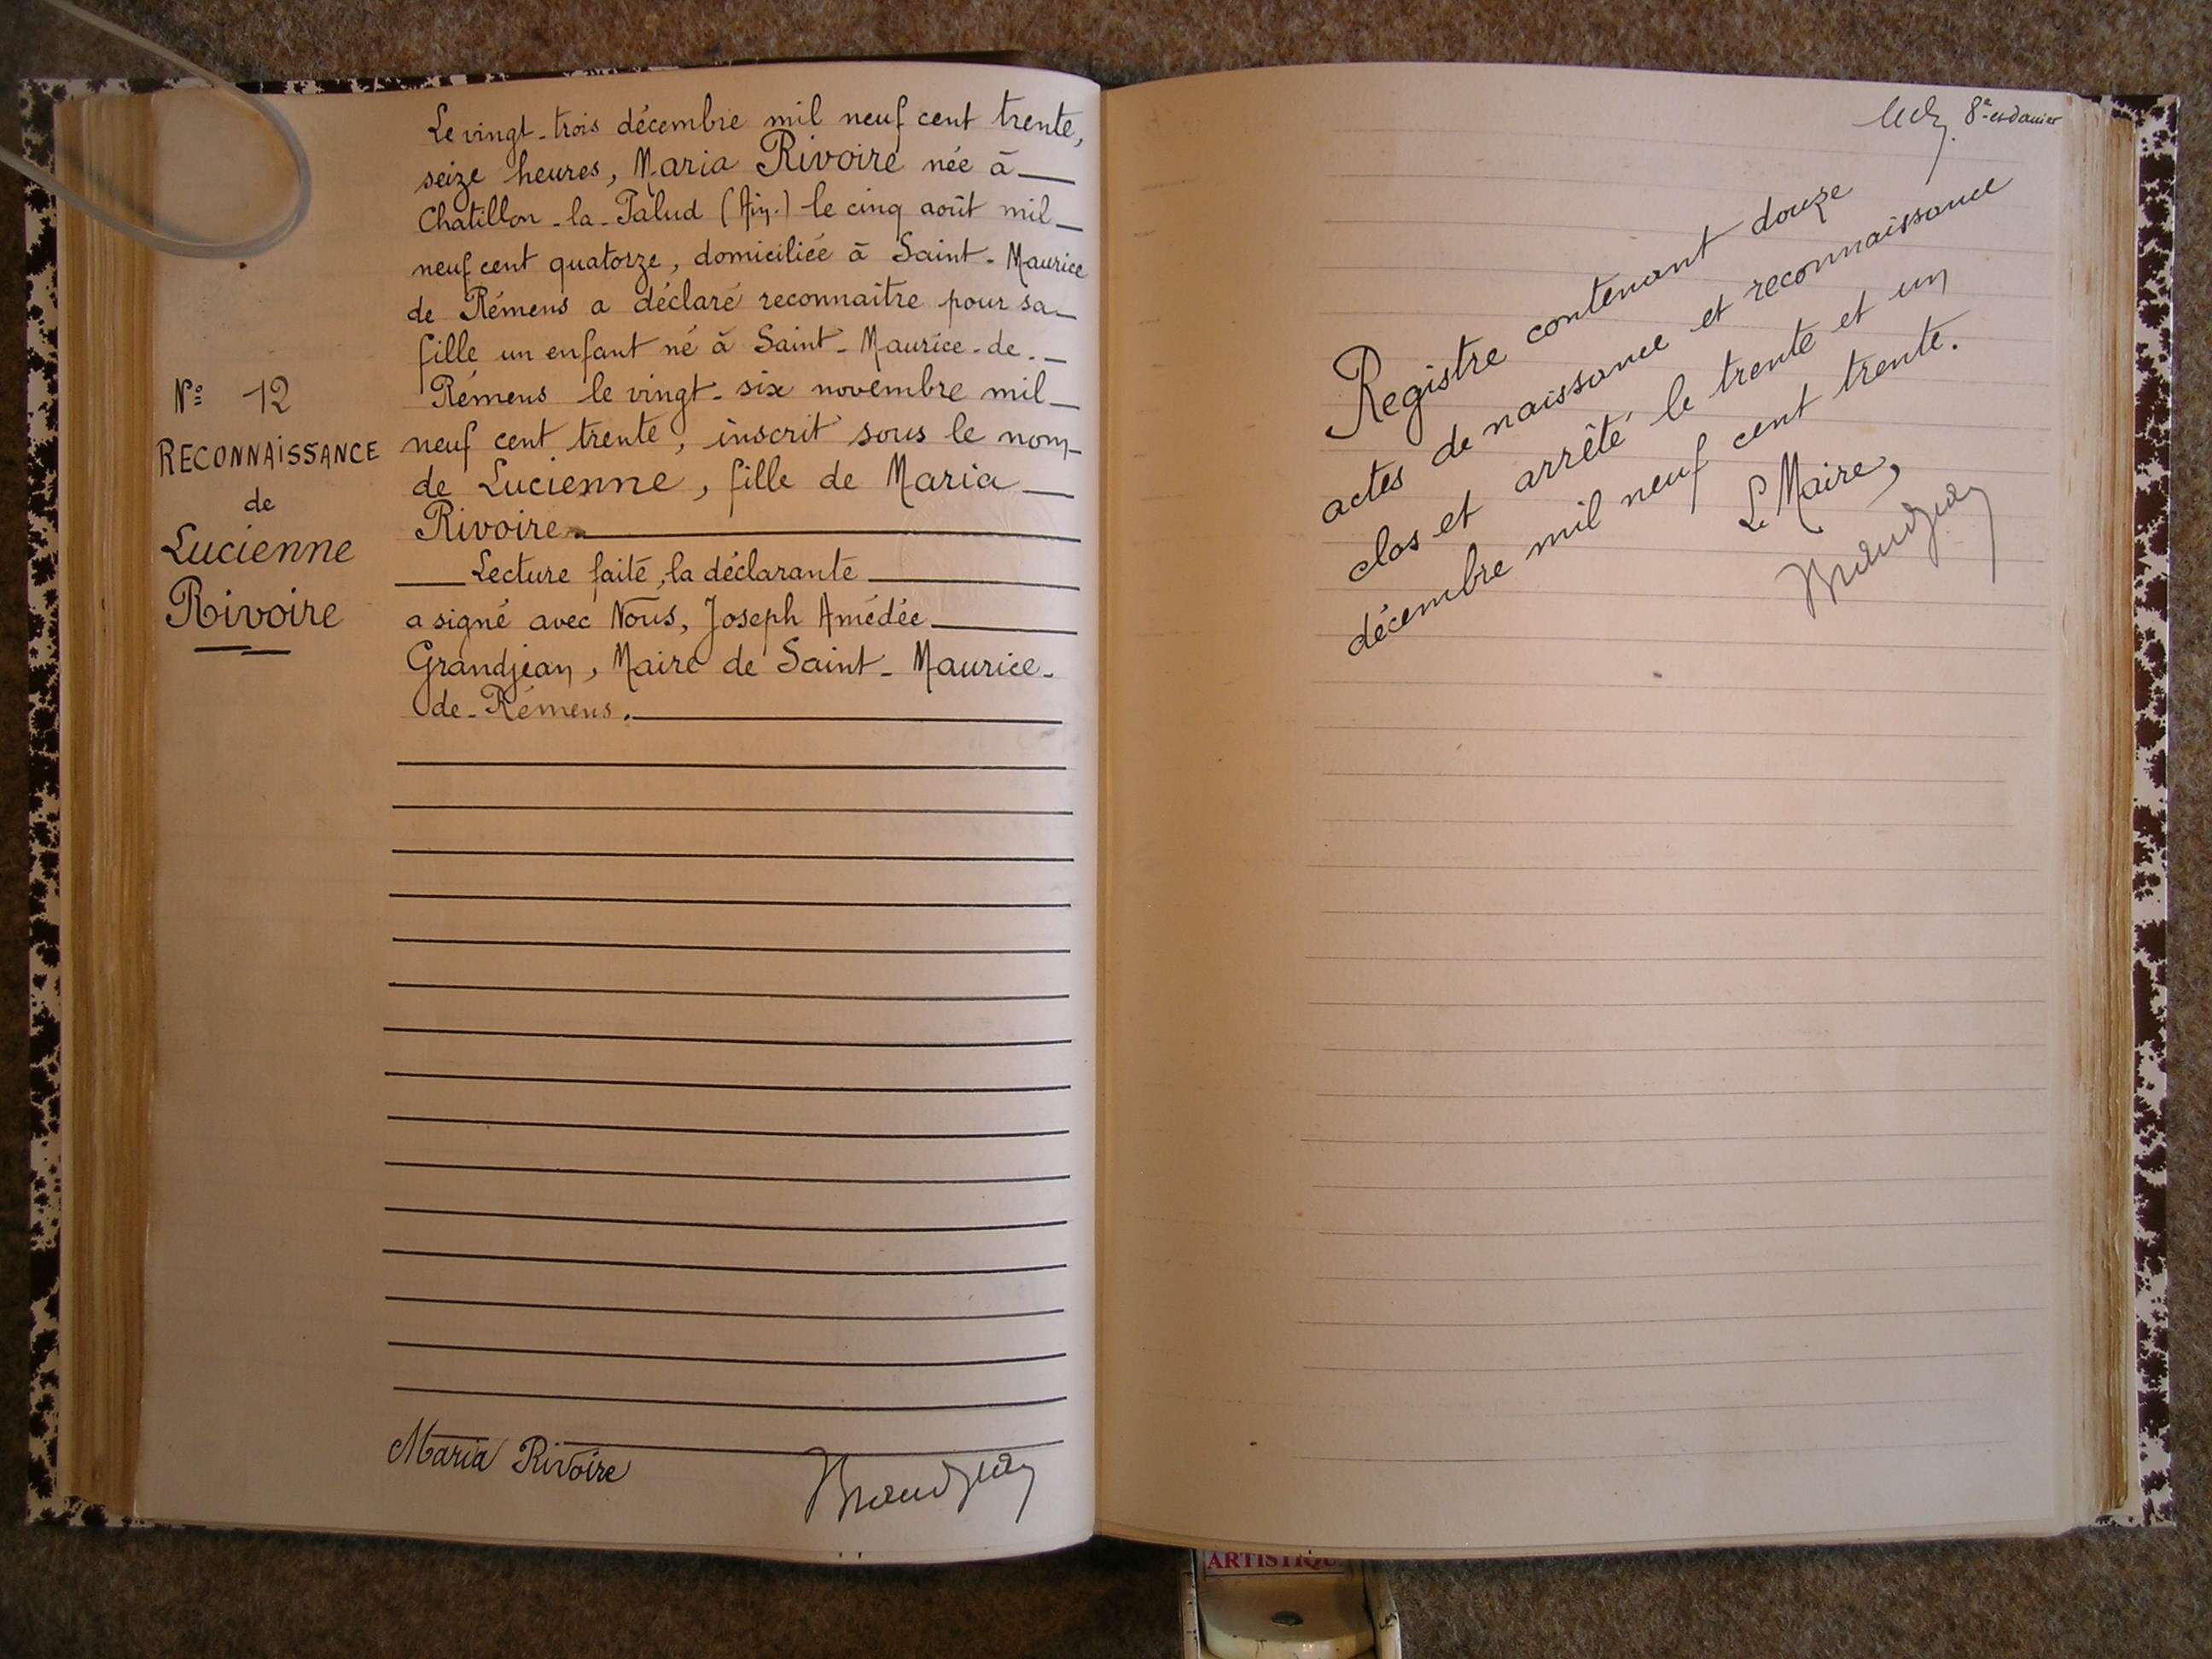 Le vingt-trois décembre mil neuf cent trente,
seize heures, Maria Rivoire née à
Chatillon-la-Palud (Ain.) le cinq août mil
neuf cent quatorze, domiciliée à Saint-Maurice
de Rémens a déclaré reconnaitre pour sa
fille un enfant né à Saint-Maurice-de-
Rémens le vingt-six novembre mil
neuf cent trente, inscrit sous le nom
de Lucienne, fille de Maria
Rivoire.
Lecture faite, la déclarante
a signé avec Nous, Joseph Amédée
Grandjean, Maire de Saint-Maurice-
de-Rémens.
N° 12
RECONNAISSANCE
de
Lucienne
Rivoire
Maria Rivoire
Grandjean
8e et dernier
Registre contenant douze
actes de naissance et reconnaissance
clos et arrêté le trente et un
décembre mil neuf cent trente.
Le Maire,
Grandjean
ARTISTIQU